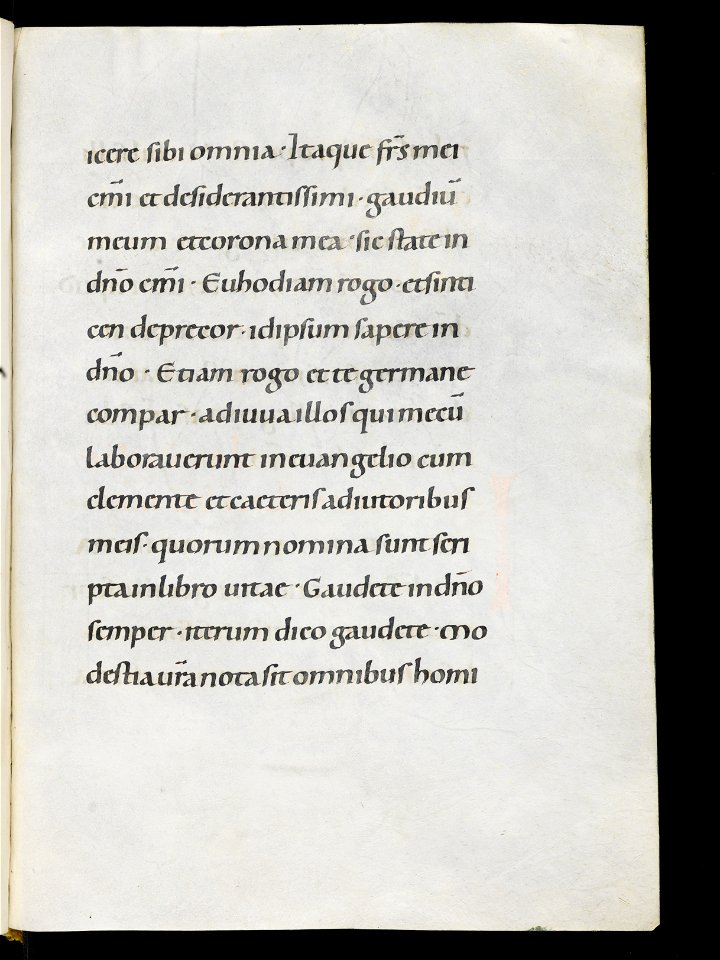 icere sibi omnia · Itaque fr̄s mei
cm̄i et desiderantissimi · gaudiū
meum et corona mea · sic state in
dn̄o cm̄i · Euhodiam rogo · et sinti
cen deprecor · idipsum sapere in
dn̄o · Etiam rogo et te germane
compar · adiuua illos qui mecū
laborauerunt in euangelio cum
clemente et caeteris adiutoribus
meis · quorum nomina sunt scri
pta in libro uitae · Gaudete in dn̄o
semper · iterum dico gaudete · Mo
destia ur̄a nota sit omnibus homi